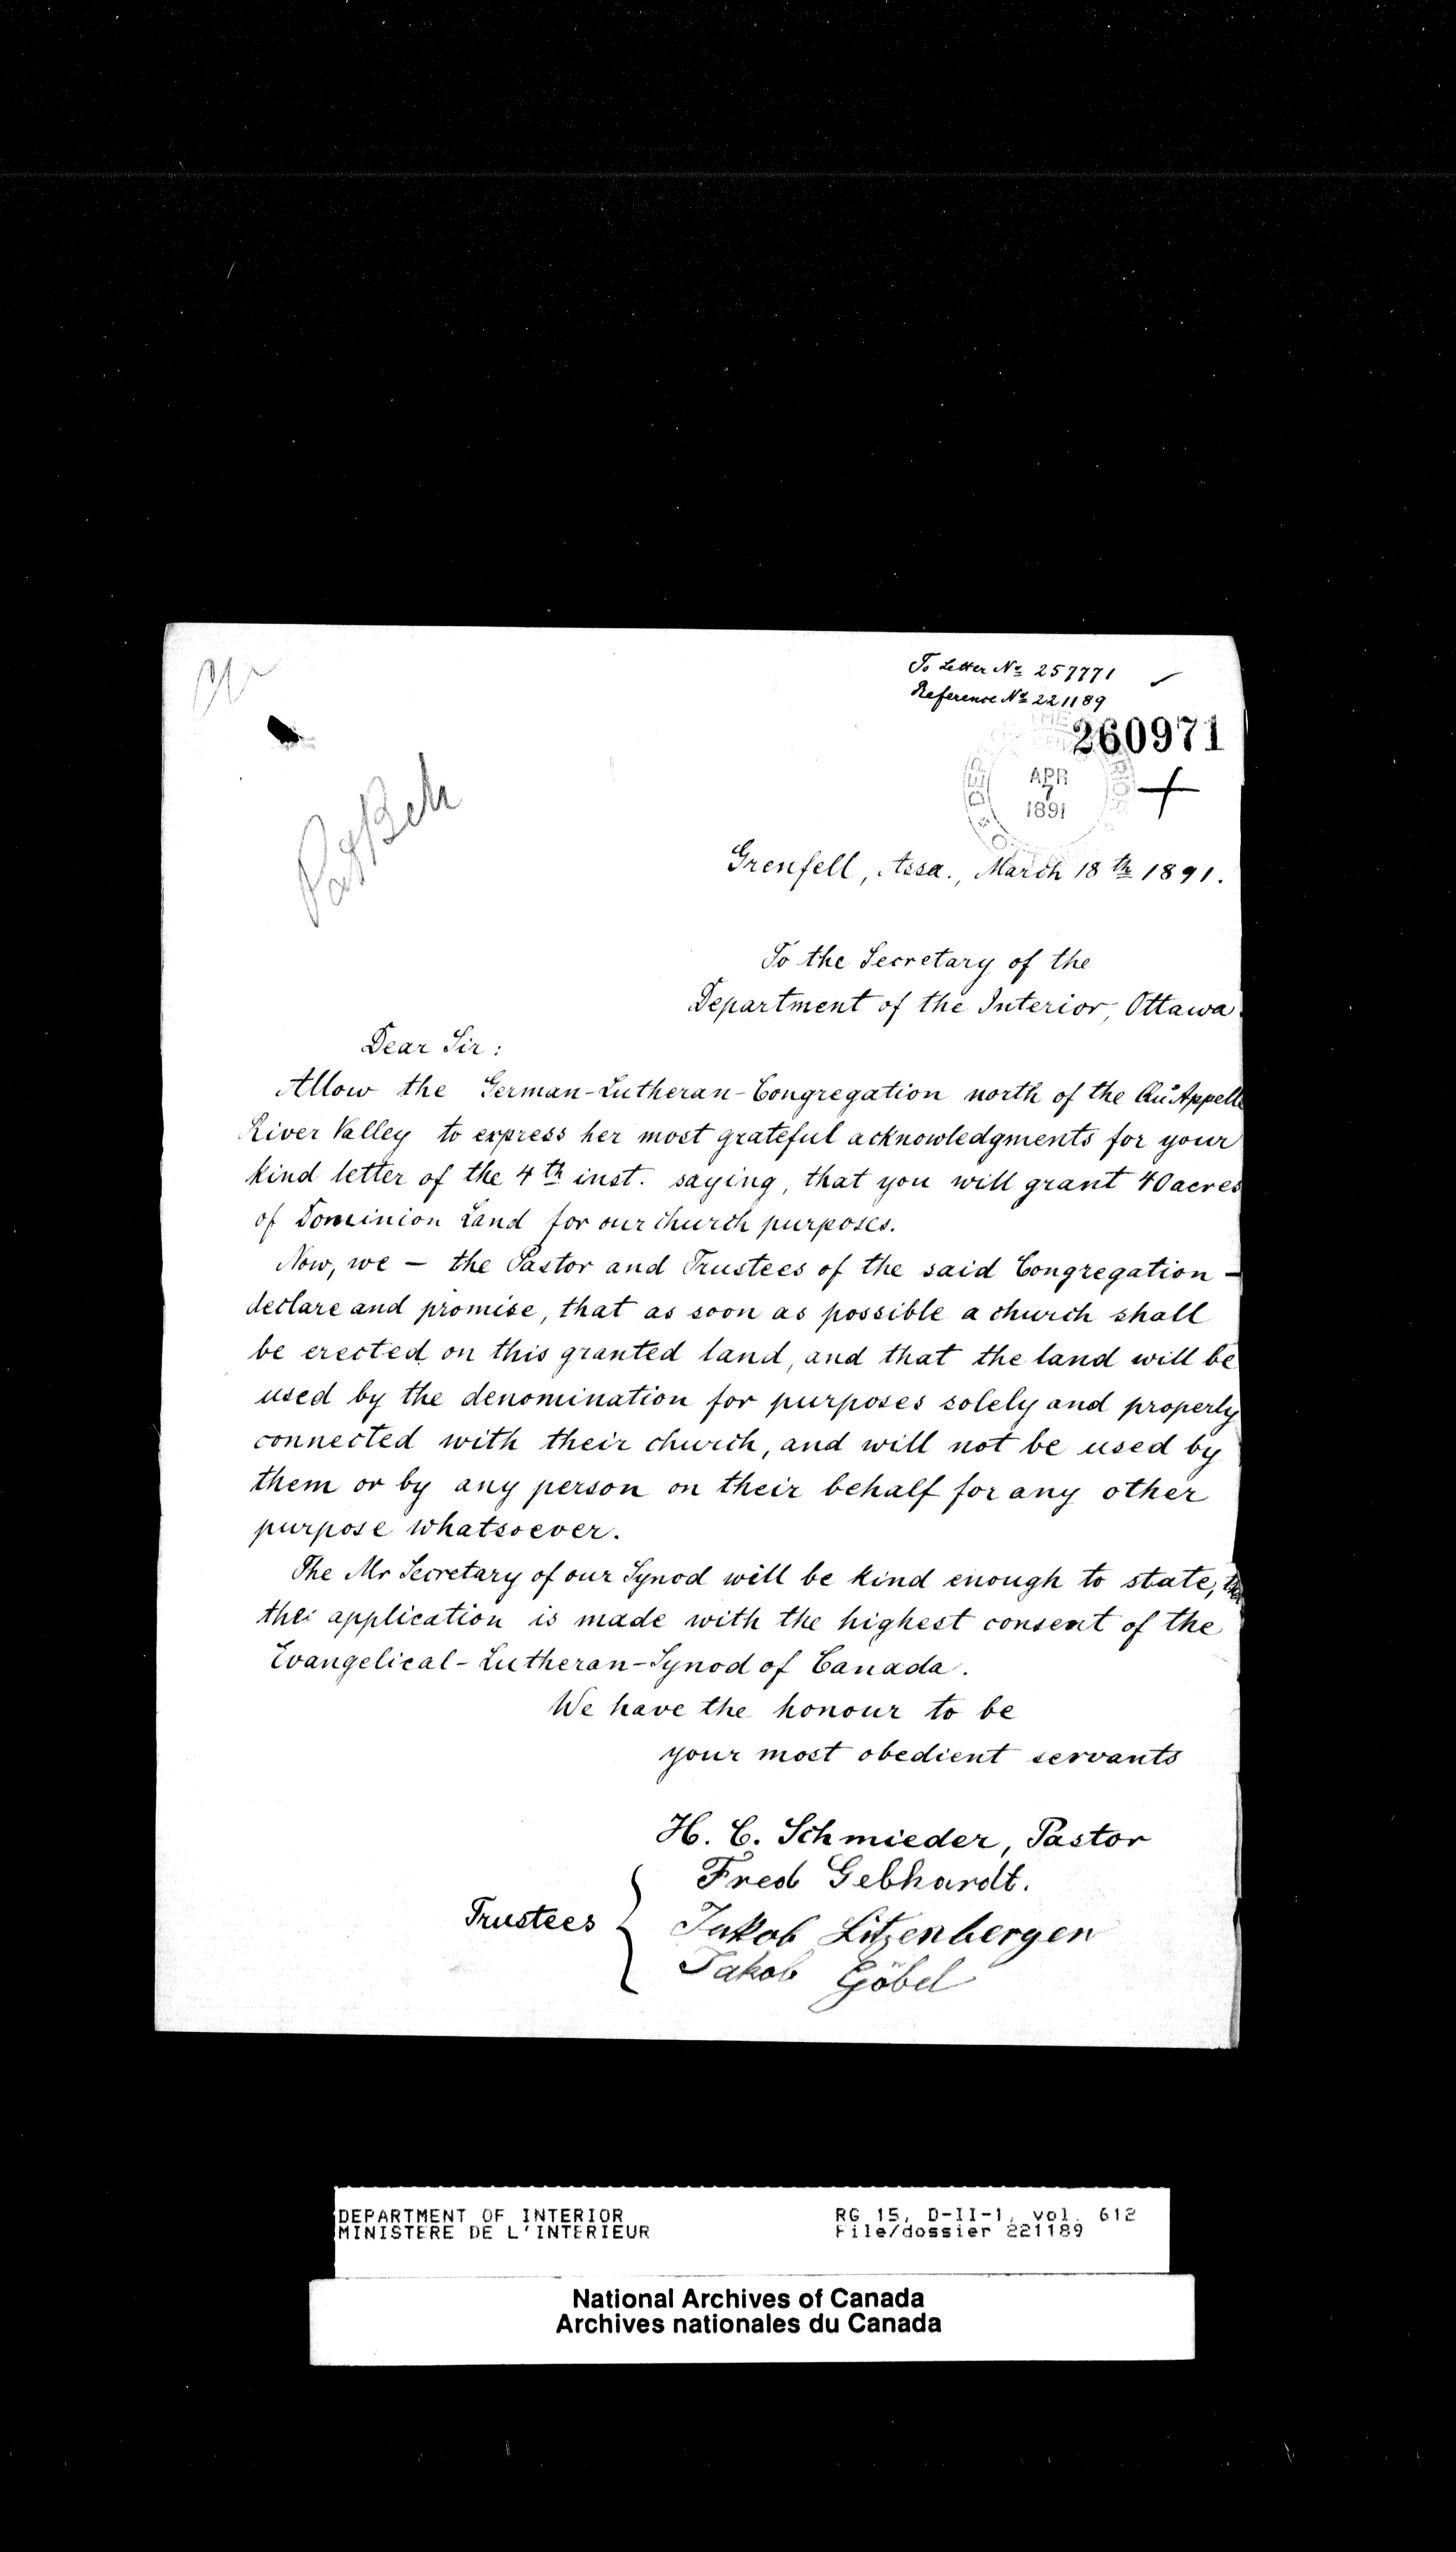 To Letter No 257771
Reference No 221189
260971
APR
7
1891
Grenfell, Assa., March 18th 1891.
To the Secretary of the
Department of the Interior, Ottawa.
Dear Sir:
Allow the German-Lutheran-Congregation north of the Qu'Appelle
River Valley to express her most grateful acknowledgments for your
kind letter of the 4th inst. saying, that you will grant 40 acres
of Dominion Land for our church purposes.
Now, we – the Pastor and Trustees of the said Congregation –
declare and promise, that as soon as possible a church shall
be erected on this granted land, and that the land will be
used by the denomination for purposes solely and properly
connected with their church, and will not be used by
them or by any person on their behalf for any other
purpose whatsoever.
The Mr Secretary of our Synod will be kind enough to state,
the application is made with the highest consent of the
Evangelical-Lutheran-Synod of Canada.
We have the honour to be
your most obedient servants
H. C. Schmieder, Pastor
Fred Gebhardt.
Trustees
Jakob Litzenbergen
Jakob Göbel
DEPARTMENT OF INTERIOR
MINISTERE DE L'INTERIEUR
RG 15, D-II-1, vol. 612
File/dossier 221189
National Archives of Canada
Archives nationales du Canada